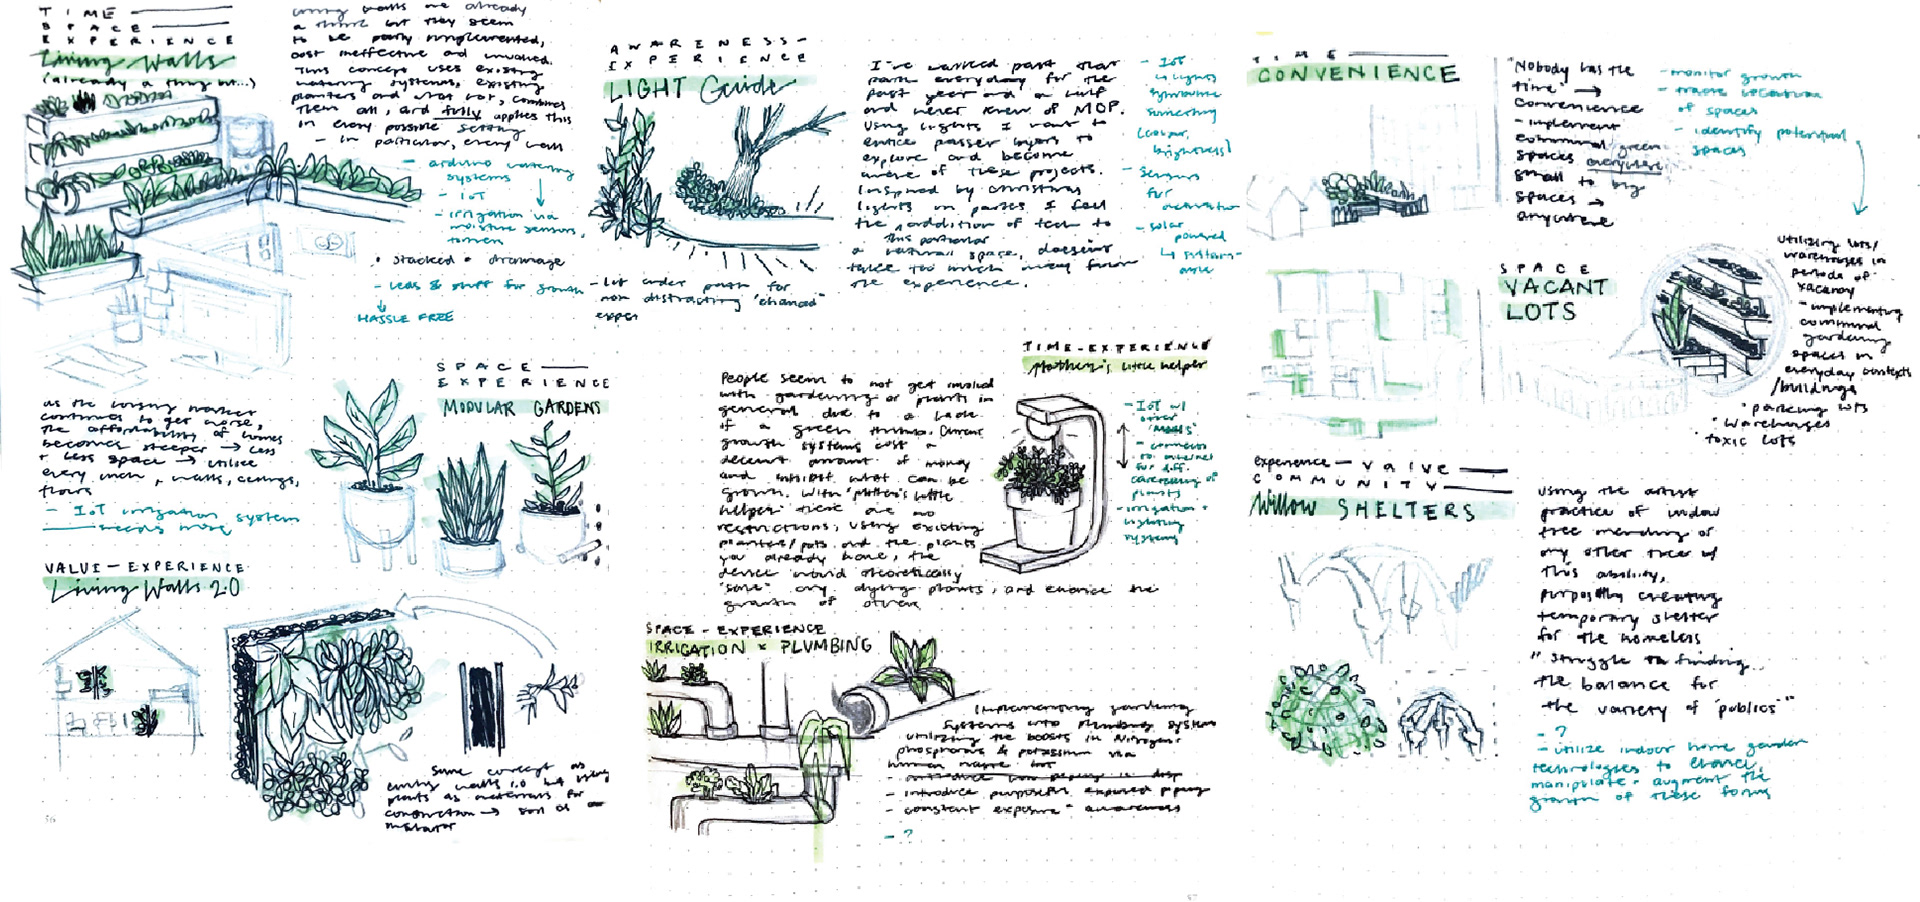 TIME
SPACE
EXPERIENCE
Living Walls
(already a thing but...)
living walls are already
a thing but they seem
to be poorly implemented,
cost ineffective and involved.
This concept uses existing
watering systems, existing
planters and what not, combines
them all, and fully applies this
in every possible setting
- in particular, every wall
- arduino watering
systems
- IoT
- irrigation via
moisture sensors,
• stacked + drainage
- LEDs & stuff for growth
HASSLE FREE
SPACE
EXPERIENCE
MODULAR GARDENS
as the housing market
continues to get worse,
the affordability of homes
becomes steeper → less
+ less space → utilize
every inch, walls, ceilings,
floors
- IoT irrigation system
VALUE - EXPERIENCE
Living Walls 2.0
Same concept as
living walls 1.0 but using
plants as materials for
construction → sort of
insulator
56
AWARENESS-
EXPERIENCE
LIGHT Guide
I've walked past that
path everyday for the
past year and a half
and never knew of MOP.
Using lights I want to
entice passer byers to
explore and become
aware of these projects.
Inspired by christmas
lights in parks I feel
the addition of tech to
this particular
a natural space, doesn't
take too much away from
the experience.
- IoT
↳ lights
symbolize
something
(colour,
brightness)
- Sensors
for
activation
- solar
powered
- lit under path for
non distracting "enhanced"
exper
TIME-EXPERIENCE
Mother's little helper
People seem to not get involved
with gardening or plants in
general due to a lack
of a green thumb. Current
growth systems cost a
decent amount of money
and inhibit what can be
grown. With "Mother's little
helper" there are no
restrictions, using existing
planters/pots and the plants
you already have, the
device would theoretically
"save" any dying plants, and enhance the
growth of others
- IoT w/
- connects
to internet
for diff.
plants
- irrigation +
lighting
system
SPACE - EXPERIENCE
IRRIGATION × PLUMBING
Implementing gardening
systems into plumbing system
utilizing the boosts in Nitrogen,
phosphorus & potassium via
human waste but
- introduce purposeful exposed piping
- constant exposure = awareness
- ?
57
TIME
CONVENIENCE
"Nobody has the
time" →
convenience
- implement
communal green
spaces everywhere
small to big
spaces →
anywhere
- monitor growth
- track location
of spaces
- identify potential
spaces
SPACE
VACANT
LOTS
utilizing lots/
warehouses in
periods of
vacancy
- implementing
communal
gardening
spaces in
everyday contexts
/buildings
• parking lots
• warehouses
• toxic lots
experience - value
COMMUNITY
Willow SHELTERS
Using the artist
practice of willow
tree mending or
any other trees w/
this ability,
purposefully creating
temporary shelter
for the homeless
"struggle in finding
the balance for
the variety of 'publics'"
- ?
- utilize indoor home garden
technologies to enhance,
manipulate + augment the
growth of these forms